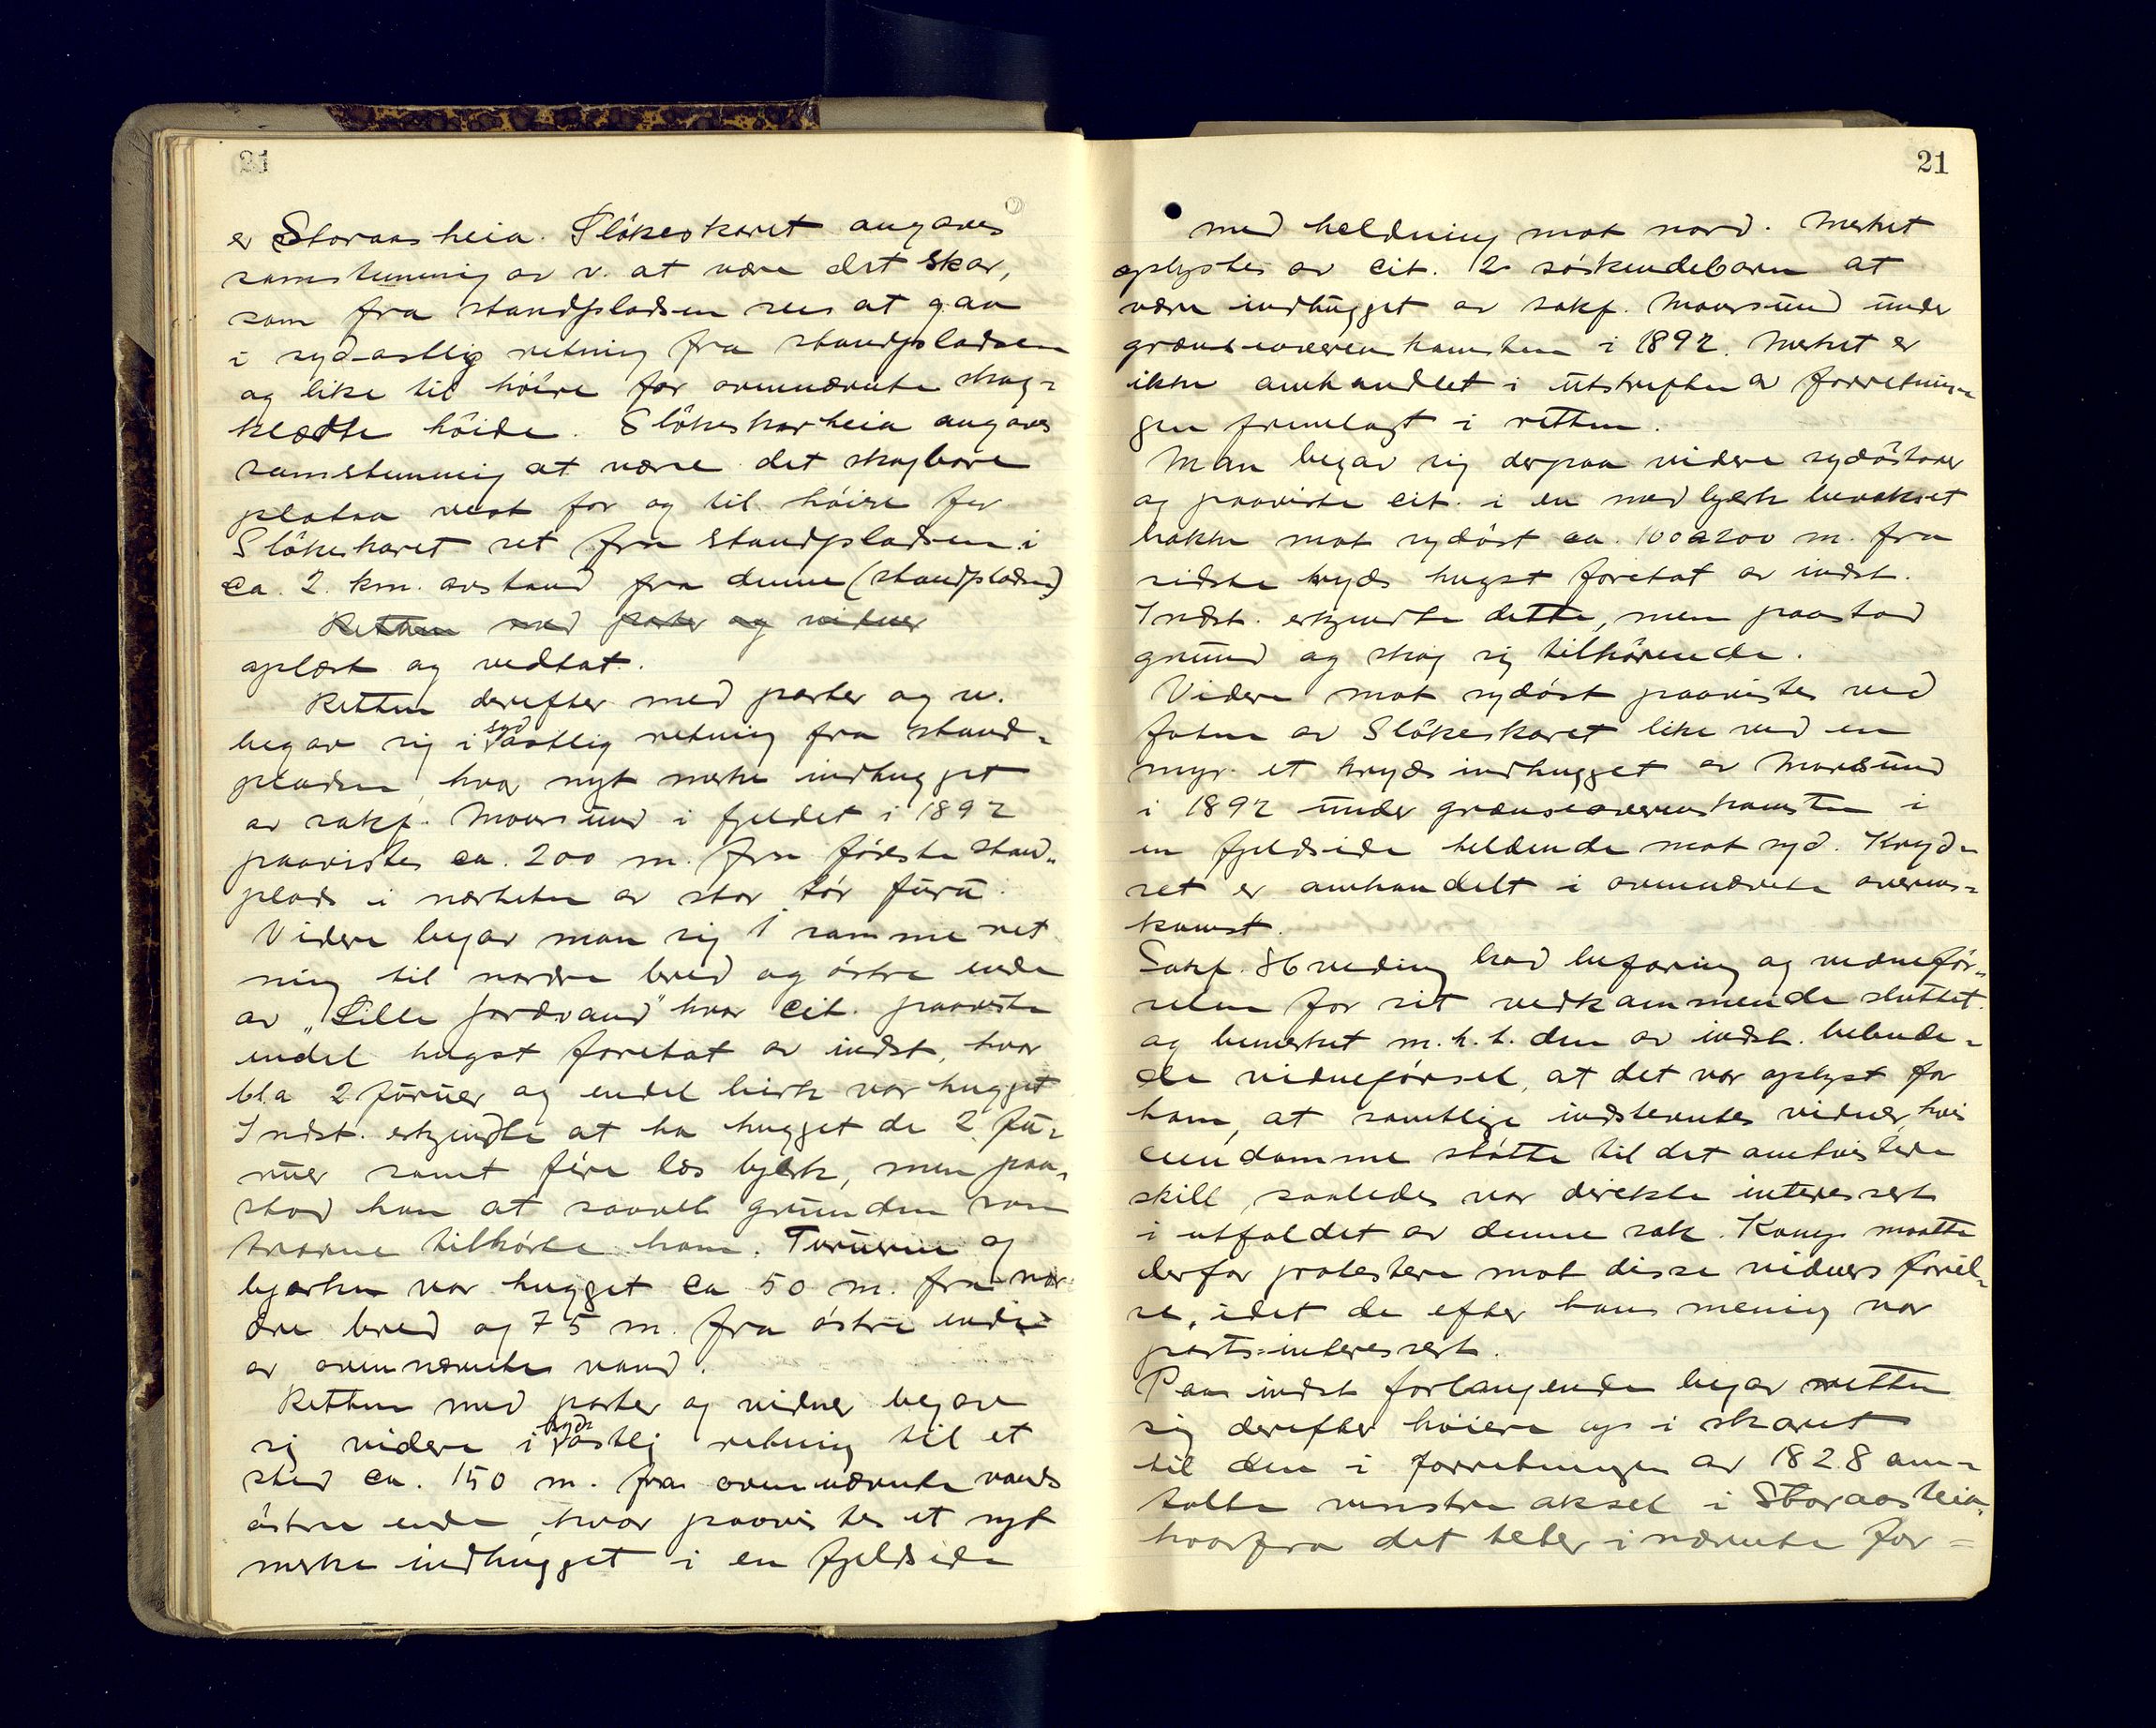 21
er Storaasheia. Slökeskaret angaves
samstemmig av v. at være det skar,
som fra standpladsen sees at gaa
i syd-østlig retning fra standpladsen
og like til höire for ovennævnte skog-
klædte höide. Slökeskarheia angaves
samstemmig at være det skogbare
plataa vest for og til höire for
Slökeskaret set fra standpladsen i
ca. 2. km. avstand fra denne (standpladsen)
Retten med parter og vidner
oplæst og vedtat.
Retten derefter med parter og v.
begav sig i syd östlig retning fra stand-
pladsen, hvor nyt merke indhugget
av sakf. Moursund i fjeldet i 1892
paavistes ca. 200 m. fra förste stand-
plads i nærheten av stor tör furu.
Videre begav man sig i samme ret
ning til nordre bred og östre ende
av "Lille Jordvand" hvor cit. paaviste
endel hugst foretat av indst, hvor
bl.a 2 furuer og endel birk var hugget
Indst. erkjendte at ha hugget de 2 fu-
ruer samt fire las bjerk, men paa-
stod han at saavel grunden som
trærne tilhörte ham. Furuerne og
bjerken var hugget ca 50 m. fra nor-
dre bred og 75 m. fra östre ende
av ovennævnte vand.
Retten med parter og vidner begav
sig videre i syd östlig retning til et
sted ca. 150 m. fra ovennævnte vands
östre ende, hvor paavistes et nyt
merke indhugget i en fjeldside
21
med heldning mot nord. Merket
oplystes av cit. 2 söskendebarn at
være indhugget av sakf. Moursund under
grænseoverenskomsten i 1892. Merket er
ikke omhandlet i utskriften av forretnin-
gen fremlagt i retten.
Man begav sig derpaa videre sydöstover
og paaviste cit. i en med bjerk bevokset
bakke mot sydöst ca. 100 a 200 m. fra
sidste kryds hugst foretat av indst.
Indst. erkjendte dette, men paastod
grund og skog sig tilhörende.
Videre mot sydöst paavistes ved
foten av Slökeskaret like ved en
myr et kryds indhugget av Moursund
i 1892 under grænseoverenskomsten i
en fjeldside heldende mot syd. Kryd-
set er omhandelt i ovennævnte overens-
komst.
Sakf. Hveding bad befaring og vidneför-
selen for sit vedkommende sluttet
og bemerket m. h. t. den av indst. bebude-
de vidneförsel, at det var oplyst for
ham, at samtlige indstevntes vidner, hvis
eiendomme stötte til det omtvistede
skill, saaledes var direkte interessert
i utfaldet av denne sak. Komp. maatte
derfor protestere mot disse vidners förel-
se, idet de efter hans mening var
parts-interessert.
Paa indst forlangende begav retten
sig derefter höiere op i skaret
til den i forretningen av 1828 om-
talte venstre aksel i Storaasheia,
hvorfra det heter i nævnte for-